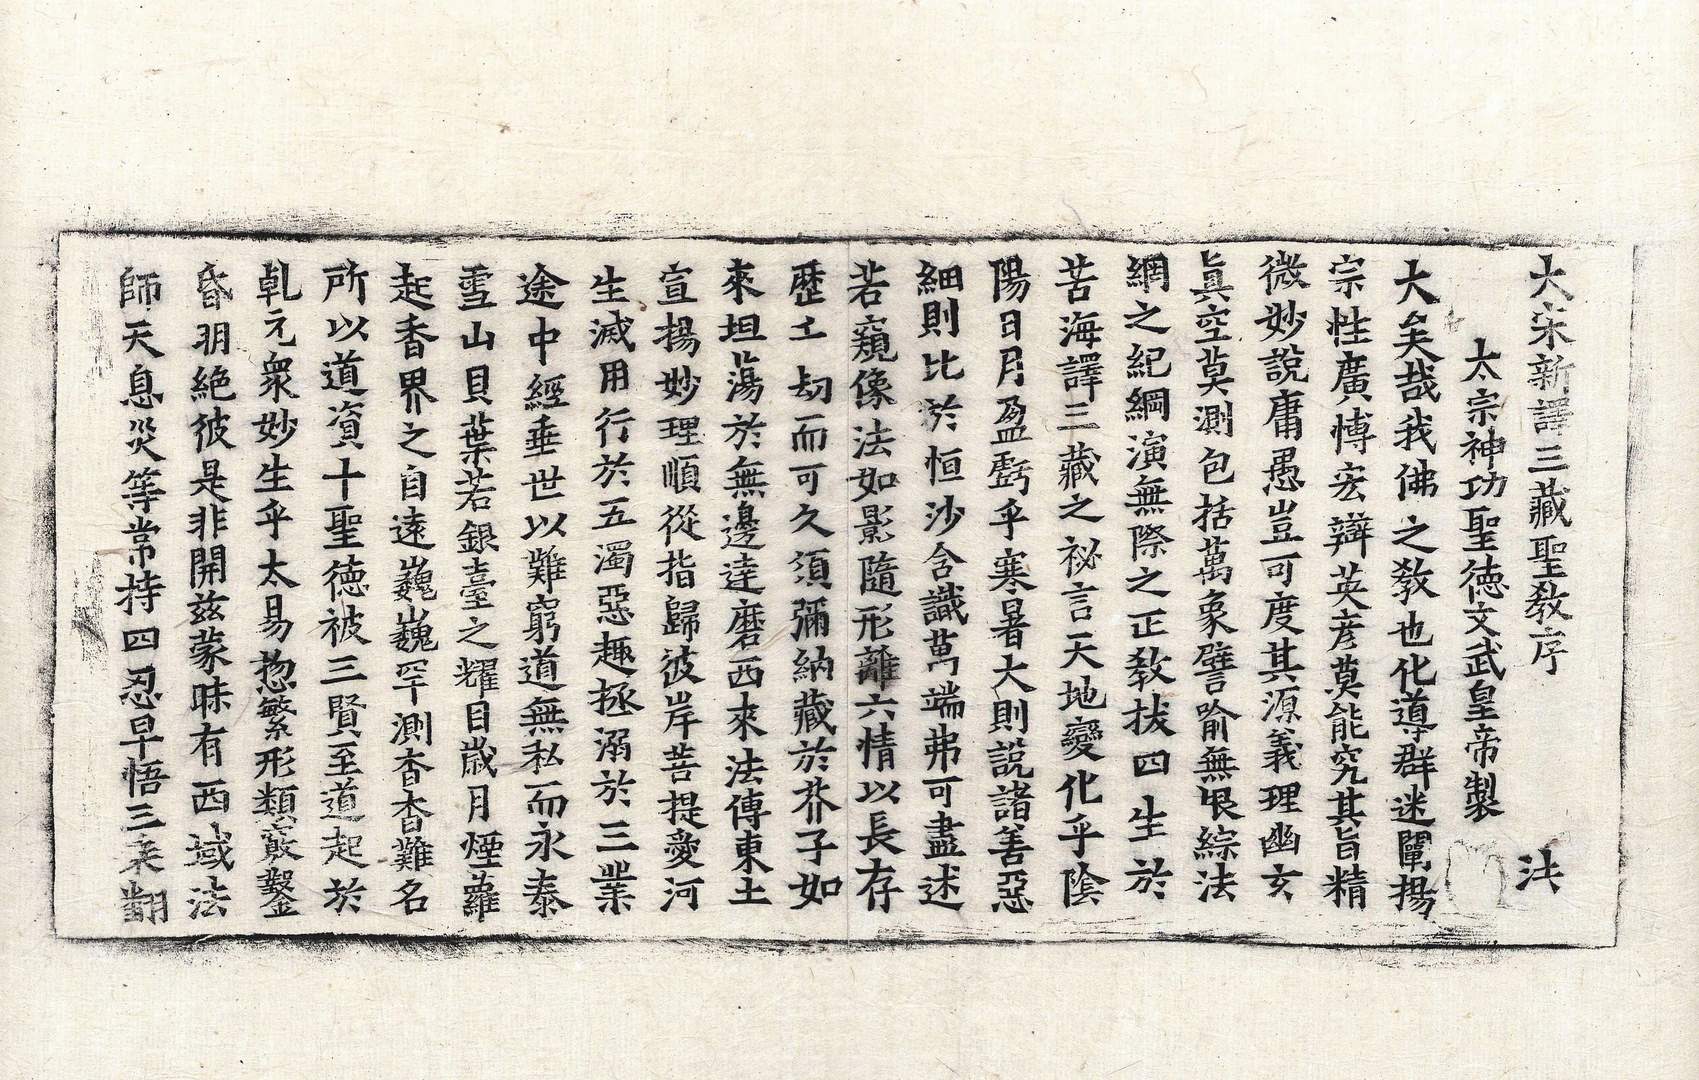 大宋新譯三藏聖教序　法
太宗神功聖德文武皇帝製
大矣哉我佛之教也化導群迷闡揚
宗性廣博宏辯英彦莫能究其旨精
微妙說庸愚豈可度其源義理幽玄
真空莫測包括萬象譬喻無垠綜法
網之紀綱演無際之正教拔四生於
苦海譯三藏之祕言天地變化乎陰
陽日月盈虧乎寒暑大則說諸善惡
細則比於恒沙含識萬端弗可盡述
若窺像法如影隨形離六情以長存
歷千劫而可久須彌納藏於芥子如
來坦蕩於無邊達磨西來法傳東土
宣揚妙理順從指歸彼岸菩提愛河
生滅用行於五濁惡趣拯溺於三業
途中經垂世以難窮道無私而永泰
雪山貝葉若銀臺之耀目歲月煙蘿
起香界之自遠巍巍罕測杳杳難名
所以道資十聖德被三賢至道起於
乹元衆妙生乎太易惣繁形類竅鑿
昏明絶彼是非開兹蒙昧有西域法
師天息災等常持四忍早悟三乘翻